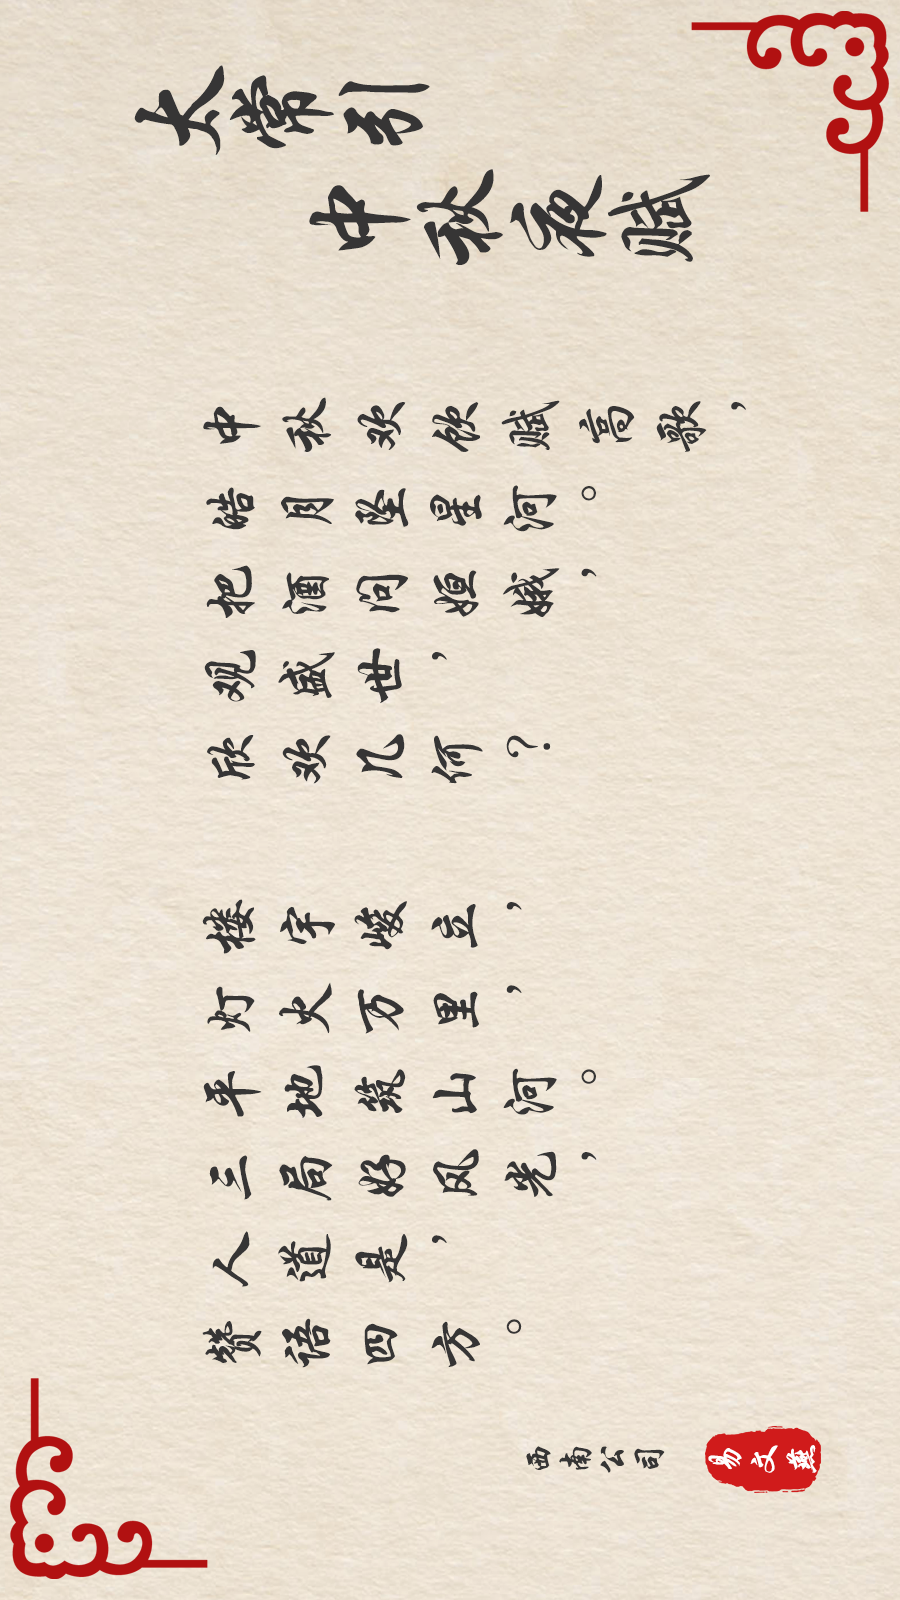 太常引
中秋夜赋
中秋欢饮赋高歌，
皓月坠星河。
把酒问姮娥，
观盛世，
欣欢几何？
楼宇峻立，
灯火万里，
平地筑山河。
三局好风光，
人道是，
赞语四方。
西南公司
易文